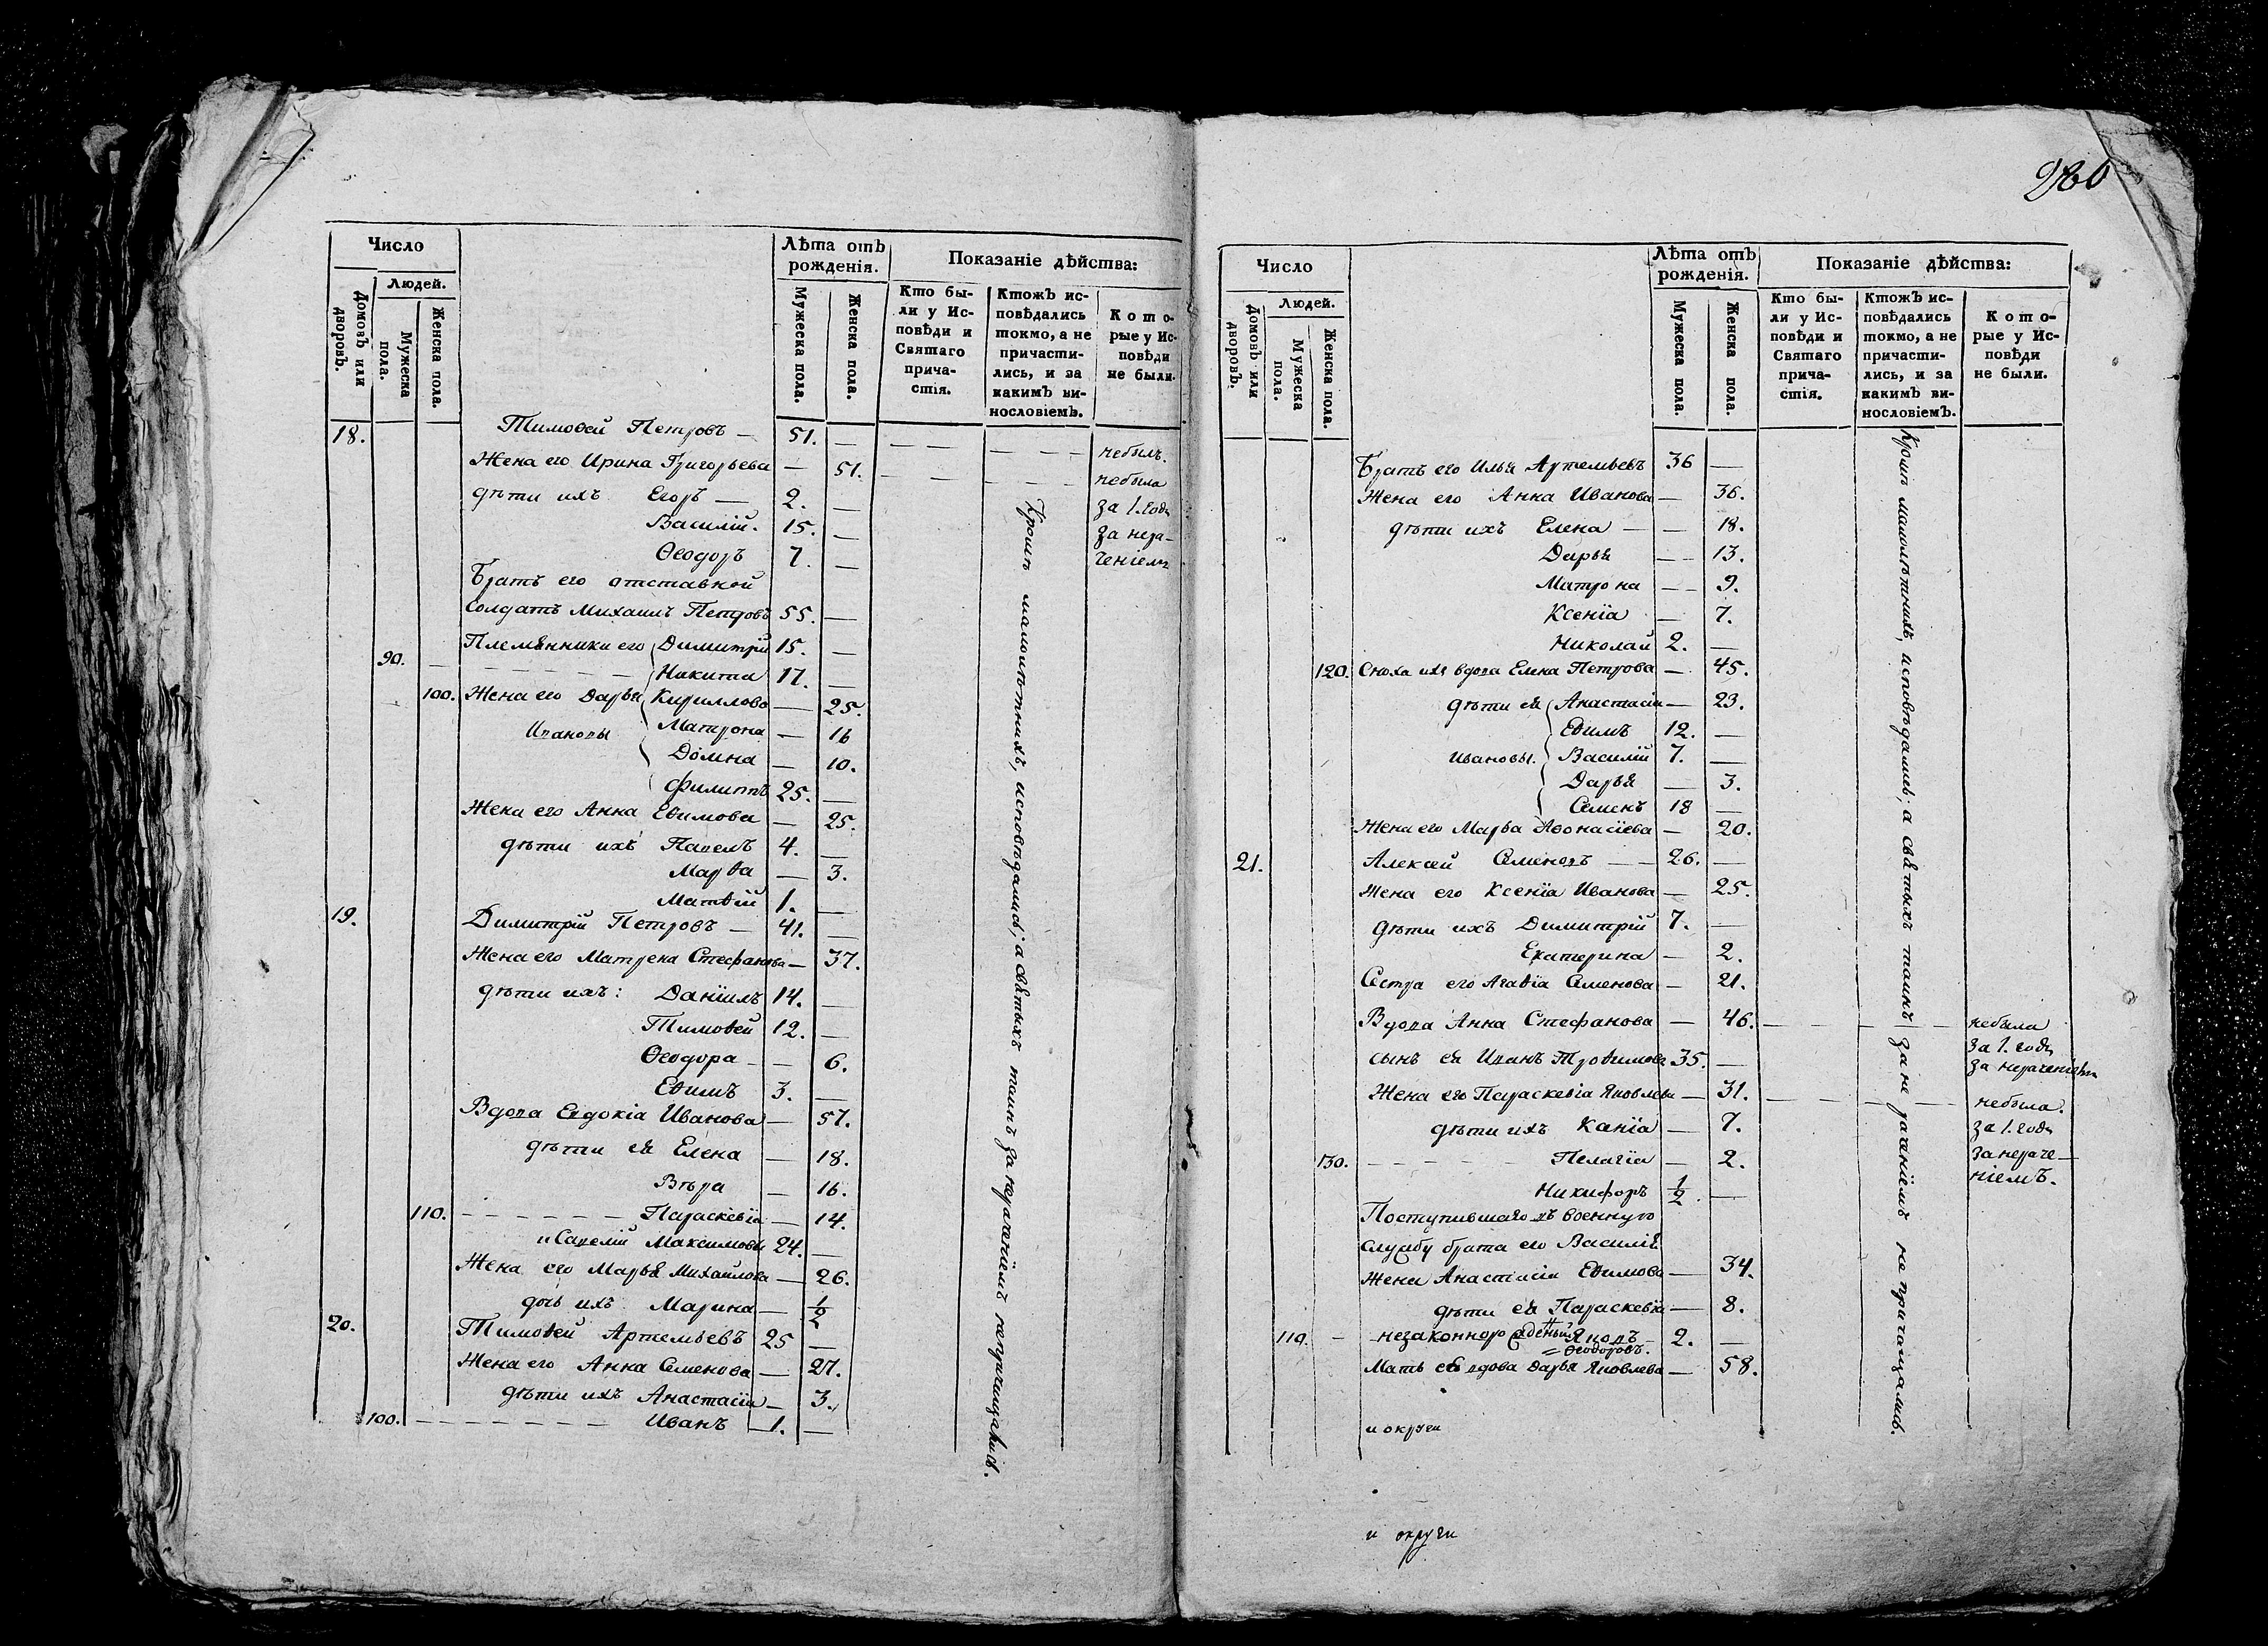 280
Число
Людей.
Домовъ или дворовъ.
Мужеска пола.
Женска пола.
Лѣта отъ рожденія.
Мужеска пола.
Женска пола.
Показаніе дѣйства:
Кто бы-
ли у Ис-
повѣди и
Святаго
прича-
стія.
Ктожъ ис-
повѣдались
токмо, а не
причасти-
лись, и за
какимъ ви-
нословіемъ.
К о т о-
рые у Ис-
повѣди
не были.
18. Тимоѳей Петровъ — 51. — — — — — — небылъ.
Жена его Ирина Григорьева — 51. — — — — — небыла
дѣти ихъ Егоръ — 2. — за 1. годъ
Василій. 15. — за нера-
Ѳеодоръ 7. — ченіемъ
Братъ его отставной
Солдатъ Михаилъ Петровъ 55. —
Племянники его Димитрій 15. —
90. — — — — — Никита 17. —
100. Жена его Дарья Кириллова — 25.
Ивановы Матрона — 16
Домна — 10.
Филиппъ 25. —
Жена его Анна Евѳимова — 25.
дѣти ихъ Павелъ 4. —
Марѳа — 3.
Матѳій 1. —
19. Димитрій Петровъ — 41. —
Жена его Матрена Стефанова — 37.
дѣти ихъ: Даніилъ 14. —
Тимоѳей 12. —
Ѳеодора — — 6.
Евѳимъ 3. —
Вдова Евдокія Иванова — 57.
дѣти ея Елена — 18.
Вѣра — 16.
110. — — — — — — Параскевія — 14.
и Савелій Максимовы 24. —
Жена его Марья Михайлова — 26.
дочь ихъ Марина — 1/2
20. Тимоѳей Артемьевъ 25 —
Жена его Анна Семенова — 27.
дѣти ихъ Анастасія — 3.
100. — — — — — — — Иванъ 1. —
Кромѣ малолѣтнихъ, исповѣдались; а святыхъ таинъ за нераченіемъ непричащались.
Число
Людей.
Домовъ или дворовъ.
Мужеска пола.
Женска пола.
Лѣта отъ рожденія.
Мужеска пола.
Женска пола.
Показаніе дѣйства:
Кто бы-
ли у Ис-
повѣди и
Святаго
прича-
стія.
Ктожъ ис-
повѣдались
токмо, а не
причасти-
лись, и за
какимъ ви-
нословіемъ.
К о т о-
рые у Ис-
повѣди
не были.
Братъ его Илья Артемьевъ 36 —
Жена его Анна Иванова — 36.
дѣти ихъ Елена — — 18.
Дарья — 13.
Матрона — 9.
Ксенія — 7.
Николай 2. —
120. Сноха ихъ вдова Елена Петрова — 45.
дѣти ея Анастасія — 23.
Евѳимъ 12. —
Ивановы. Василій 7. —
Дарья — 3.
Семенъ 18 —
Жена его Марья Аѳонасіева — 20.
21. Алексей Семеновъ — — 26. —
Жена его Ксенія Иванова — 25.
дѣти ихъ Димитрій 7. —
Екатерина — 2.
Сестра его Агаѳія Семенова — 21.
Вдова Анна Стефанова — 46. — — — — небыла
за 1. годъ
сынъ ея Иванъ Троѳимовъ 35. — за нераченіемъ
Жена его Параскевія Яковлева — 31. — — — — — небыла.
дѣти ихъ Ксенія — 7. за 1. годъ
130. — — — — — Пелагія — 2. за нераче-
ніемъ.
Никифоръ 1/2. —
Поступившаго въ военную
службу брата его Василія
Жена Анастасія Евѳимова — 34.
дѣти ея Параскевія — 8.
110. — незаконнорожденный Яковъ — 2. —
= Ѳеодоровъ.
Мать ея вдова Дарья Яковлева — 58.
Кромѣ малолѣтнихъ, исповѣдались; а святыхъ таинъ за не раченіемъ не причащались.
и округи
и округи